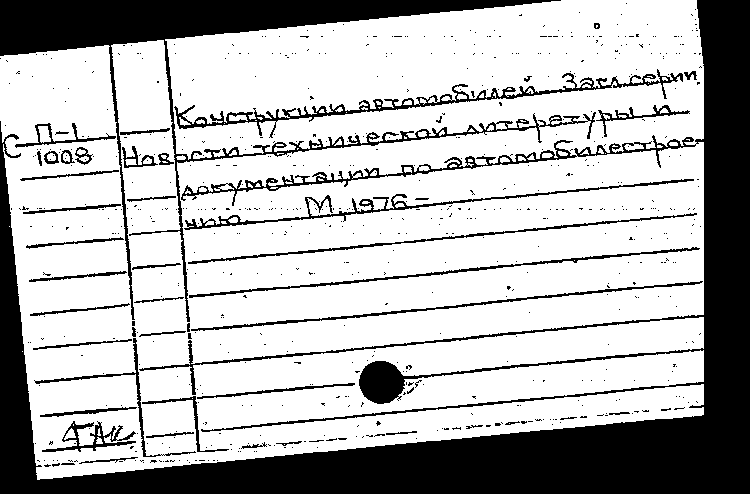 Конструкции автомобилей. Загл.серии
С П-1
1008
Новости технической литературы и
документации по автомобилестрое-
нию. М., 1976 –